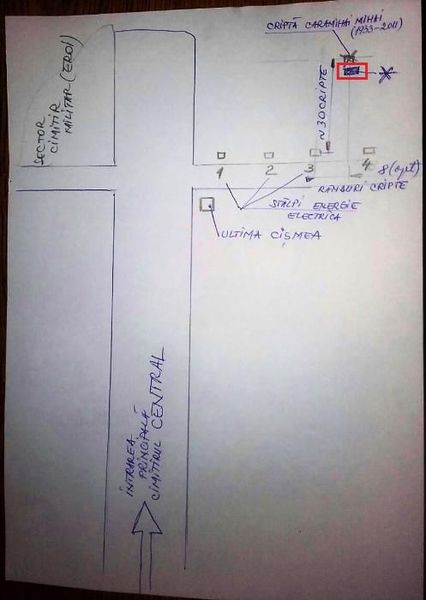 CRIPTĂ CARAMIHAI MIHAI
(1933-2011)
SECTOR
CIMITIR
MILITAR (EROI)
N 30 CRIPTE
1
2
3
4
8 (opt)
RANDURI CRIPTE
STÂLPI ENERGIE
ELECTRICĂ
ULTIMA CIȘMEA
INTRAREA
PRINCIPALĂ
CIMITIRUL CENTRAL